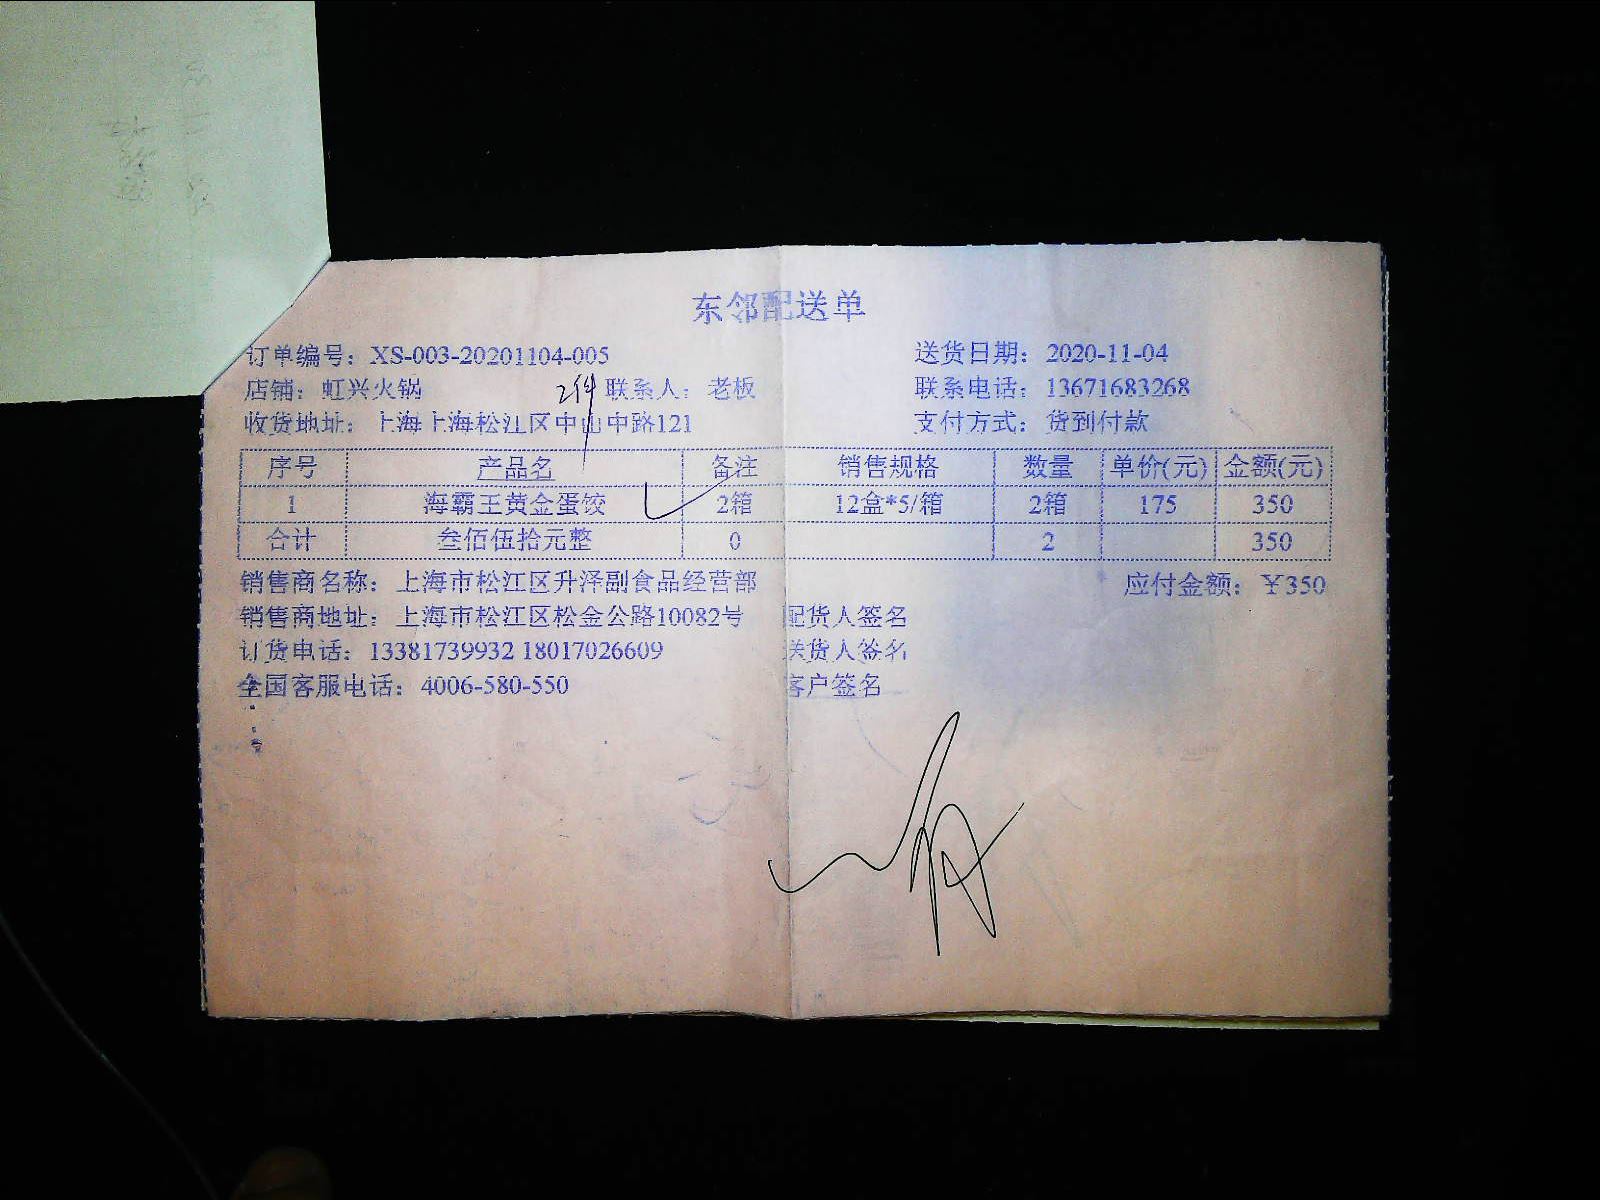 东邻配送单
订单编号：XS-003-20201104-005 送货日期：2020-11-04
店铺：虹兴火锅 2件 联系人：老板 联系电话：13671683268
收货地址：上海上海松江区中山中路121 支付方式：货到付款
序号 产品名 备注 销售规格 数量 单价(元) 金额(元)
1 海霸王黄金蛋饺 2箱 12盒*5/箱 2箱 175 350
合计 叁佰伍拾元整 0 2 350
销售商名称：上海市松江区升泽副食品经营部 应付金额：￥350
销售商地址：上海市松江区松金公路10082号 配货人签名
订货电话：13381739932 18017026609 送货人签名
全国客服电话：4006-580-550 客户签名